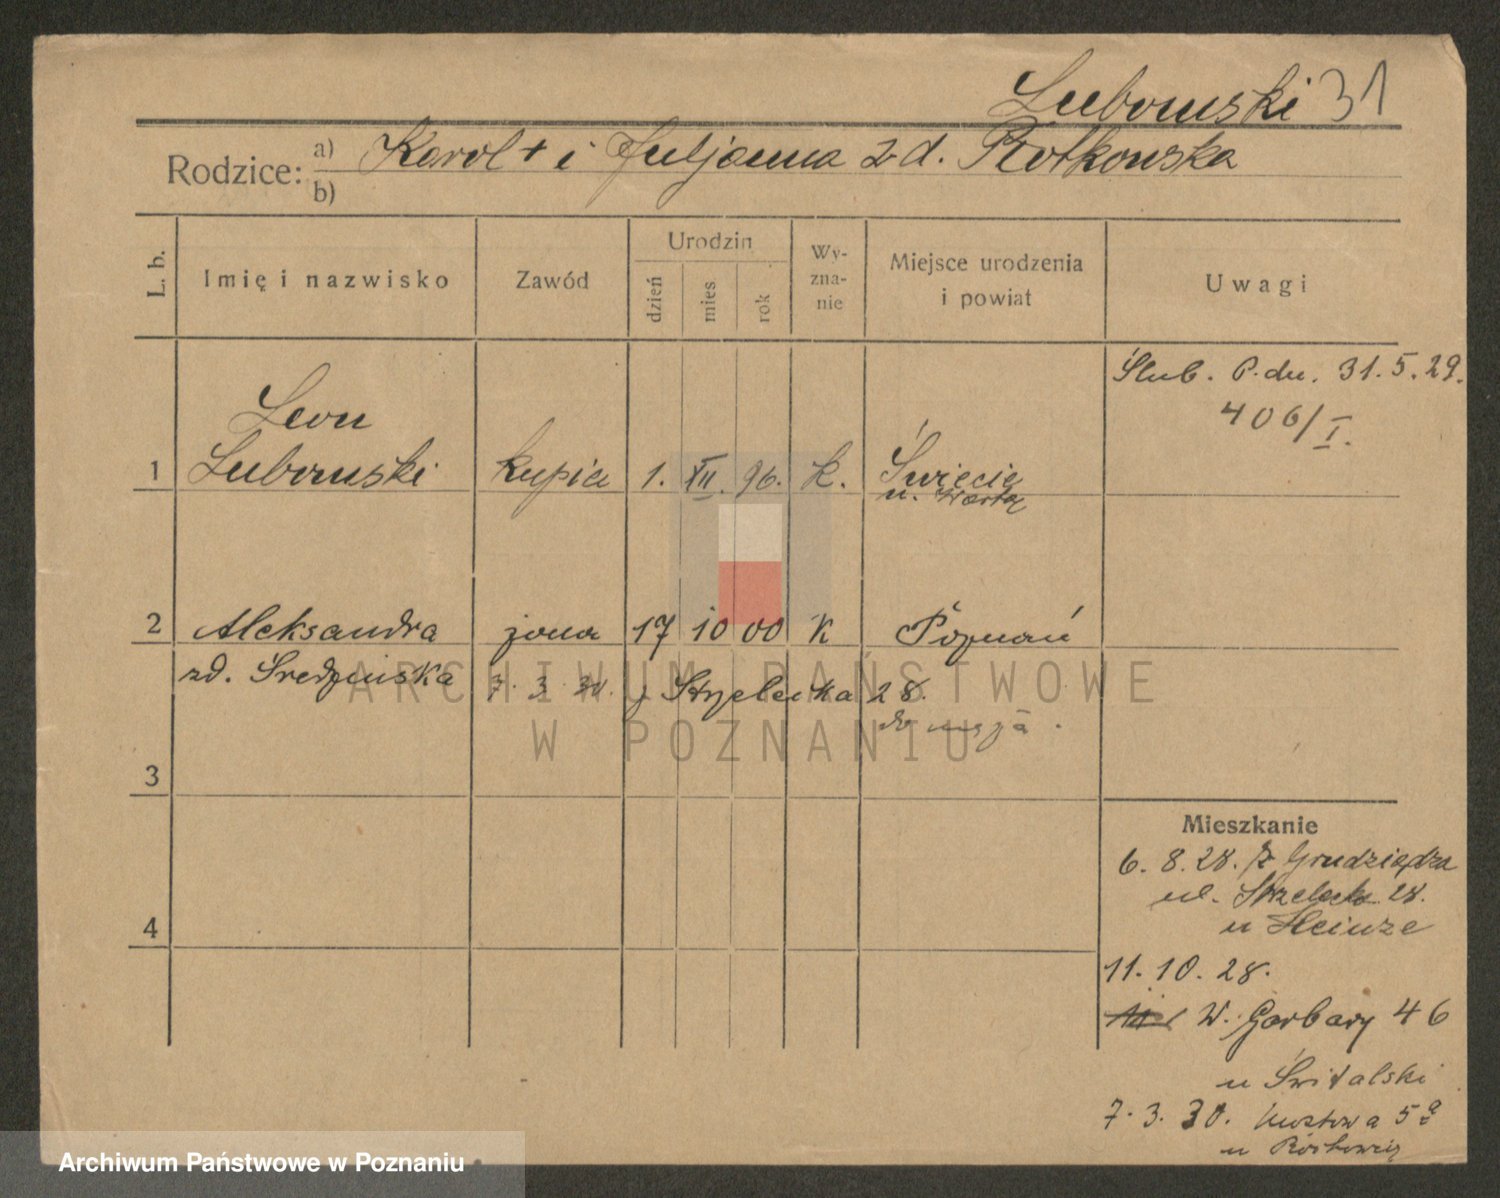 Lubowski 31
Rodzice: a) Karol + i Juljanna z d. Piotkowska
b)
L. b.
Imię i nazwisko
Zawód
Urodzin
dzień
mies
rok
Wy-
zna-
nie
Miejsce urodzenia
i powiat
Uwagi
Ślub. P. dn. 31.5.29.
406/I.
1 Leon
Lubowski kupiec 1. XII. 96. k. Świecie
n. Wartą
2 Aleksandra żona 17 10 00 K Poznań
zd. Średzińska 7. 3. 30. z Strzelecka 28.
do męża.
ARCHIWUM PAŃSTWOWE
W POZNANIU
3
4
Mieszkanie
6. 8. 28. z Grudziądza
ul. Strzelecka 28.
u Heinze
11. 10. 28.
W. Garbary 46
u Świtalski
7. 3. 30. Mostowa 5a
u
Archiwum Państwowe w Poznaniu